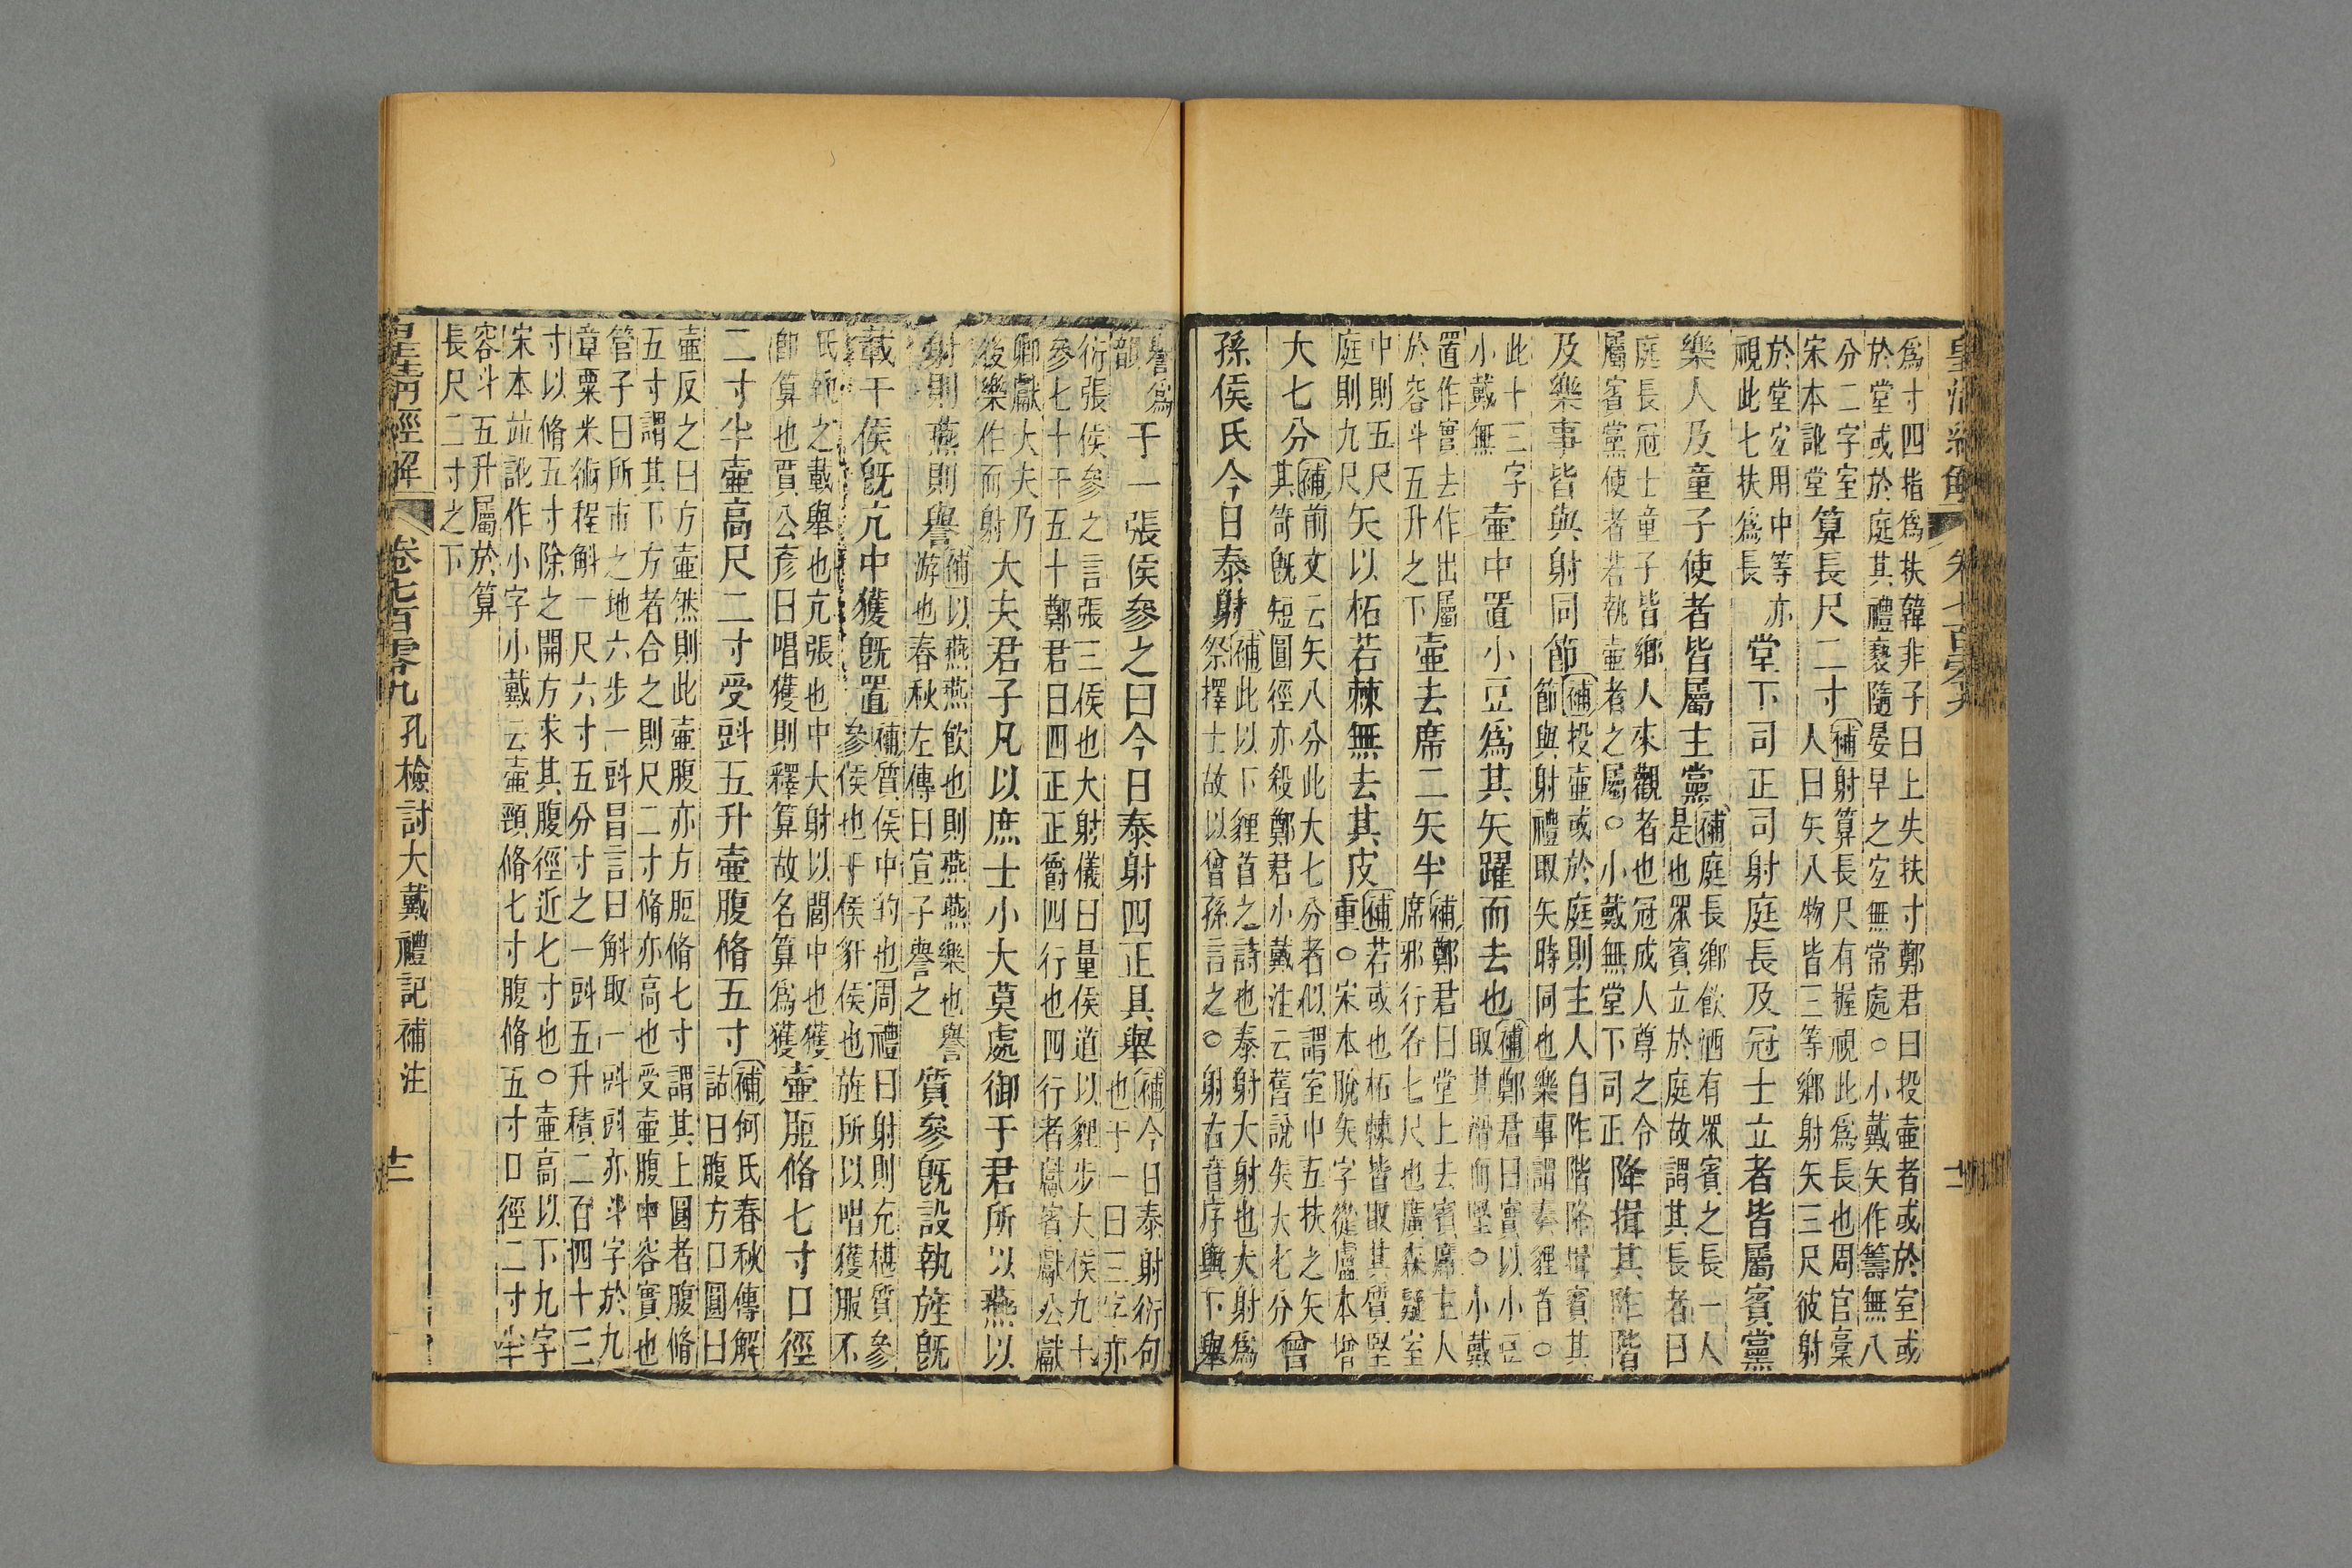 爲寸四指爲扶韓非子曰上失扶寸鄭君曰投壷者或於室或
於堂或於庭其禮褻隨晏早之宐無常處○小戴矢作籌無八
分二字室
宋本訛堂
算長尺二寸
補射算長尺有握視此爲長也周官㯱
人曰矢八物皆三等鄉射矢三尺彼射
於堂宐用中等亦
視此七扶爲長
堂下司正司射庭長及冠士立者皆屬賓黨
樂人及童子使者皆屬主黨
補庭長鄉飮酒有衆賓之長一人
是也衆賓立於庭故謂其長者曰
庭長冠士童子皆鄉人來觀者也冠成人尊之令
屬賓黨使者若執壷者之屬○小戴無堂下司正
降揖其阼階
及樂事皆與射同節
補投壷或於庭則主人自阼階降揖賓其
節與射禮取矢時同也樂事謂奏貍首○
此十三字
小戴無
壷中置小豆爲其矢躍而去也
補鄭君曰實以小豆
取其滑而堅○小戴
置作實去作出屬
於容斗五升之下
壷去席二矢半
補鄭君曰堂上去賓席主人
席邪行各七尺也廣森疑室
中則五尺
庭則九尺
矢以柘若棘無去其皮
補若或也柘棘皆取其質堅
重○宋本脫矢字從盧本增
大七分
補前文云矢八分此大七分者似謂室中五扶之矢
其笴旣短圓徑亦殺鄭君小戴注云舊說矢大七分
曾
孫侯氏今日泰射
補此以下貍首之詩也泰射大射也大射爲
祭擇士故以曾孫言之○射右音序與下舉
譽爲
韻
于一張侯參之曰今日泰射四正具舉
補今日泰射衍句
也于一曰三字亦
衍張侯參之言張三侯也大射儀曰量侯道以貍步大侯九十
參七十干五十鄭君曰四正正爵四行也四行者獻賓獻公獻
卿獻大夫乃
後樂作而射
大夫君子凡以庶士小大莫處御于君所以燕以
射則燕則譽
補以燕燕飮也則燕燕樂也譽
游也春秋左傳曰宣子譽之
質參旣設執旌旣
載干侯旣亢中獲旣置
補質侯中的也周禮曰射則充椹質參
參侯也干侯豻侯也旌所以唱獲服不
氏執之載舉也亢張也中大射以閭中也獲
卽算也賈公彥曰唱獲則釋算故名算爲獲
壷脰脩七寸口徑
二寸半壷高尺二寸受斞五升壷腹脩五寸
補何氏春秋傳解
詁曰腹方口圓曰
壷反之曰方壷然則此壷腹亦方脰脩七寸謂其上圓者腹脩
五寸謂其下方者合之則尺二寸脩亦高也受壷腹中容實也
管子曰所市之地六步一斞昌言曰斛取一斞斞亦斗字於九
章粟米術程斛一尺六寸五分寸之一斞五升積二百四十三
寸以脩五寸除之開方求其腹徑近七寸也○壷高以下九字
宋本竝訛作小字小戴云壷頸脩七寸腹脩五寸口徑二寸半
容斗五升屬於算
長尺二寸之下
皇淸經解
卷七百零九
孔檢討大戴禮記補注
十二